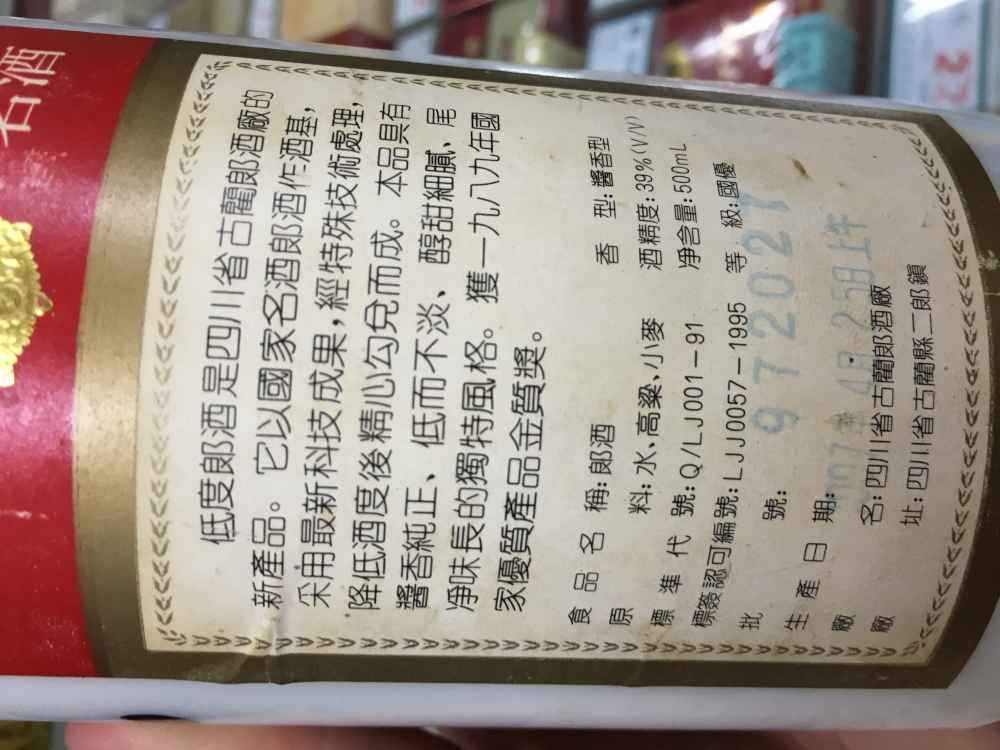 名酒
低度郎酒是四川省古藺郎酒廠的
新產品。它以國家名酒郎酒作酒基,
采用最新科技成果,經特殊技術處理,
降低酒度後精心勾兌而成。本品具有
醬香純正、低而不淡、醇甜細膩、尾
凈味長的獨特風格。獲一九八九年國
家優質產品金質獎。
食品名稱:郎酒 香型:醬香型
原料:水、高粱、小麥 酒精度:39%(V/V)
標準代號:Q/LJ001-91 凈含量:500mL
標簽認可編號:LJJ0057-1995 等級:國優
批號: 972027
生產日期: 1997年4月25日上午
廠名:四川省古藺郎酒廠
廠址:四川省古藺縣二郎鎮